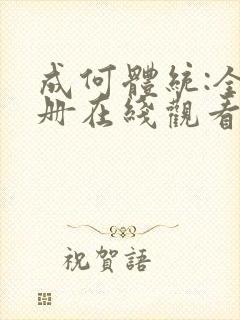 成何體統:全
册在綫觀看
祝賀語